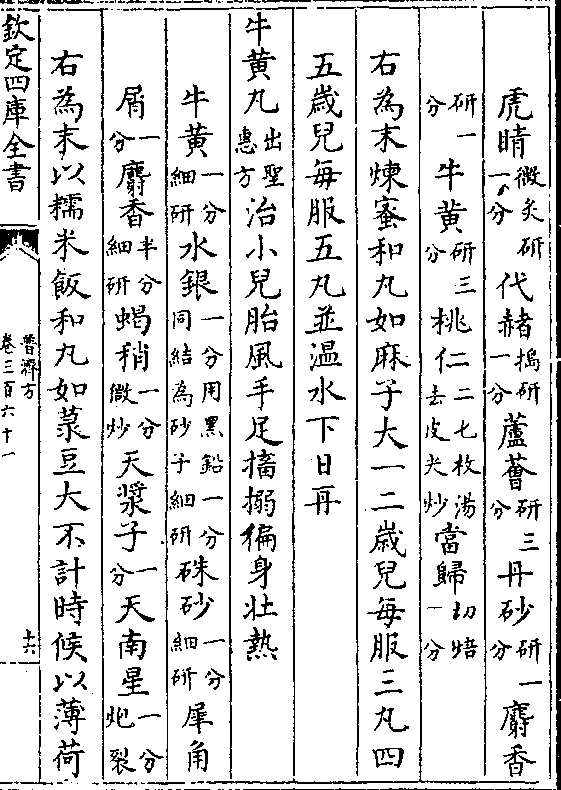 虎睛微炙研一分代赭搗研一分蘆薈研三分丹砂研一分麝香
研一分牛黄研三分桃仁二七枚湯去皮尖炒當歸切焙一分
右為末煉蜜和丸如麻子大一二歳兒每服三丸四
五歳兒每服五丸並温水下日再
牛黄丸出聖惠方治小兒胎風手足搐搦徧身壯熱
牛黄一分細研水銀一分用黑鉛一分同結為砂子細研硃砂一分細研犀角
屑一分麝香半分細研蝎稍一分微炒天漿子一分天南星一分炮裂
右為末以糯米飯和丸如菉豆大不計時候以薄荷
欽定四庫全書
普濟方
卷三百六十一
十六